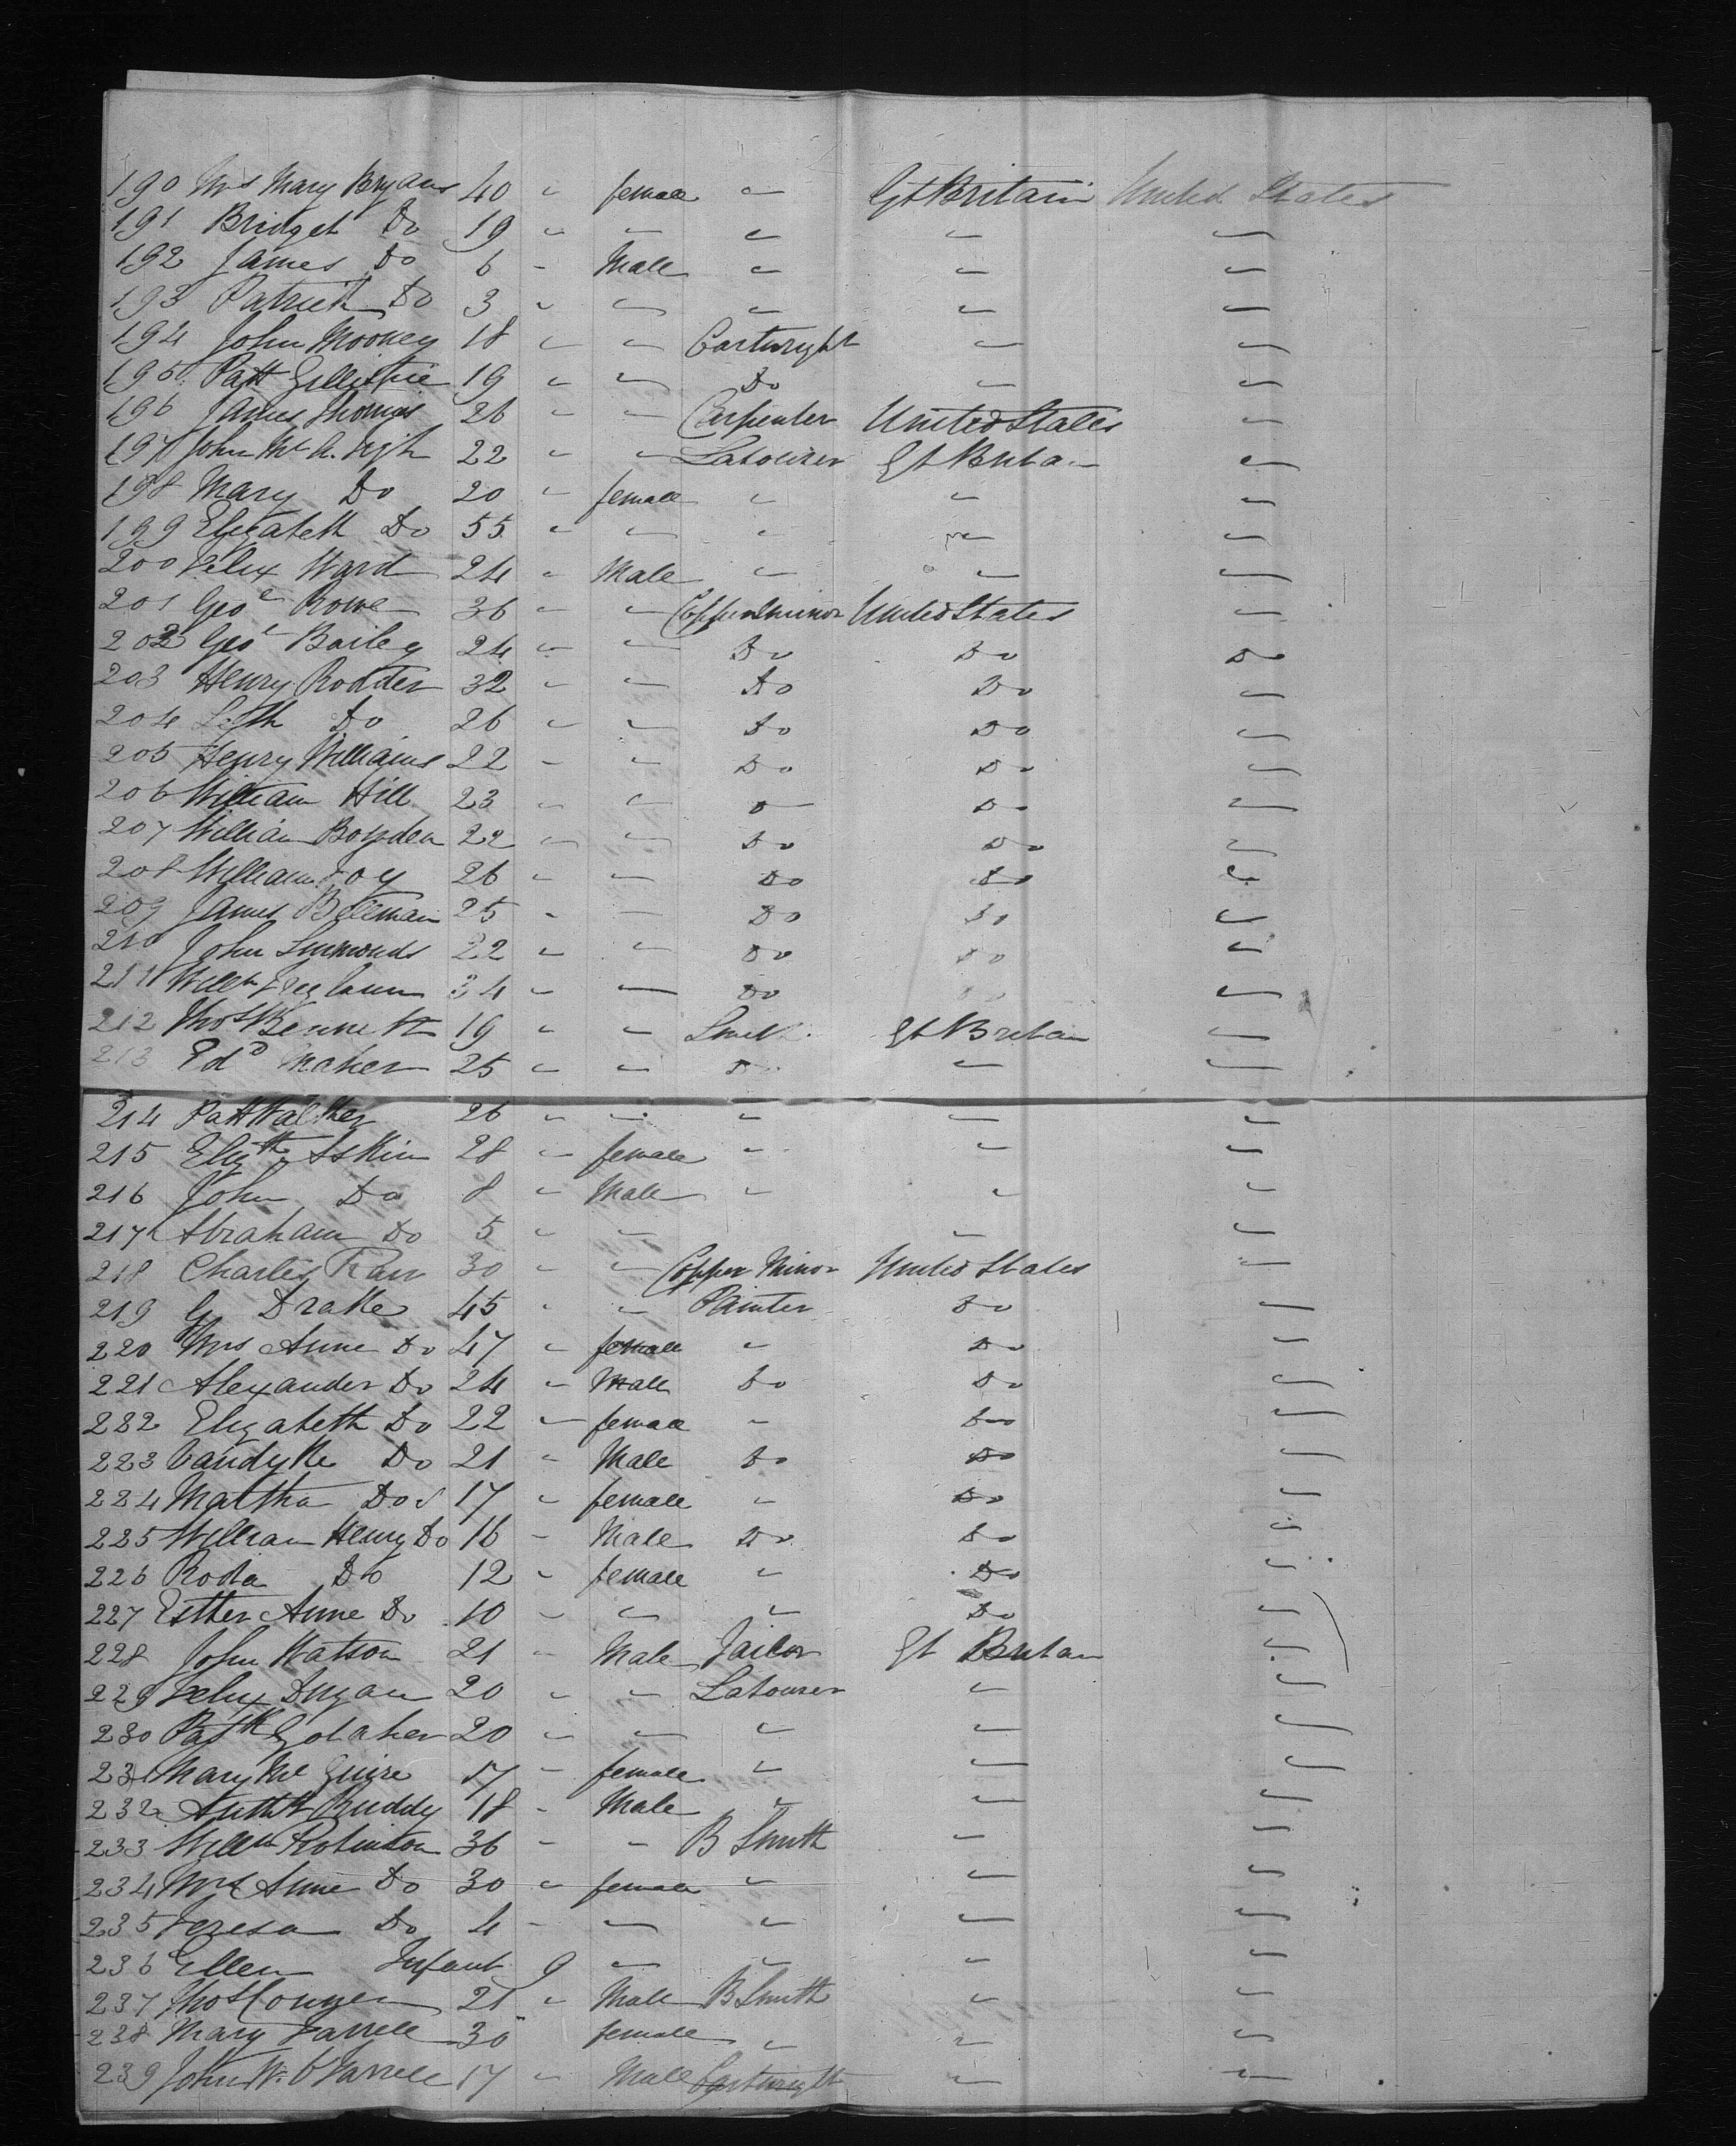 190 Mrs Mary Bryans 40 " female " Gt Britain United States
191 Bridget Do 19 " " " " "
192 James Do 6 " Male " " "
193 Patrick Do 3 " " " " "
194 John Mooney 18 " " Cartwright " "
195 Patt Gillispie 19 " " Do " "
196 James Thomas 26 " " Carpenter United States "
197 John Mc 22 " " Labourer Gt Britan "
198 Mary Do 20 " female " " "
199 Elizabeth Do 55 " " " " "
200 Felix Ward 24 " Male " " "
201 Geoe Rowe 36 " " Copper minor United States "
202 Geoe Bailey 24 " " Do Do Do
203 Henry Rodder 32 " " Do Do "
204 Do 26 " " Do Do "
205 Henry Williams 22 " " Do Do "
206 William Hill 23 " " Do "
207 William Boyden 22 " " Do Do "
208 William Foy 26 " " Do Do "
209 James Bileman 25 " " Do Do "
210 John Simmonds 22 " " Do Do "
211 Willm 34 " " Do Do "
212 Thos Bennett 19 " " Smith Gt Britan "
213 Edd Maher 25 " " Do " "
214 Patt Walker 26 " " " " "
215 Elizth Askin 28 " female " " "
216 John Do 8 " Male " " "
217 Abraham Do 5 " " " "
218 Charles Rain 30 " " Copper Minor United States "
219 G Drake 45 " " Painter Do "
220 Mrs Anne Do 47 " female " Do "
221 Alexander Do 24 " Male Do Do "
222 Elizabeth Do 22 " female " Do "
223 Vandyke Do 21 " Male Do Do "
224 Martha Do 17 " female " Do "
225 William Henry Do 16 " Male Do Do "
226 Roda Do 12 " female " Do "
227 Esther Anne Do 10 " " " Do "
228 John Watson 21 " Male Tailor Gt Britan "
229 Felix Dugan 20 " " Labourer " "
230 Patk Golaher 20 " " " " "
231 Mary Mc Guire 17 " female " " "
232 Ruddy 18 " Male " " "
233 Willm Robinson 36 " " B Smith " "
234 Mrs Anne Do 30 " female " " "
235 Teresa Do 4 " " " " "
236 Ellen Infant 9 " " " "
237 Thos Conner 21 " Male B Smith " "
238 Mary Farrell 30 " female " " "
239 John W. O Farrell 17 " Male Cartwright " "